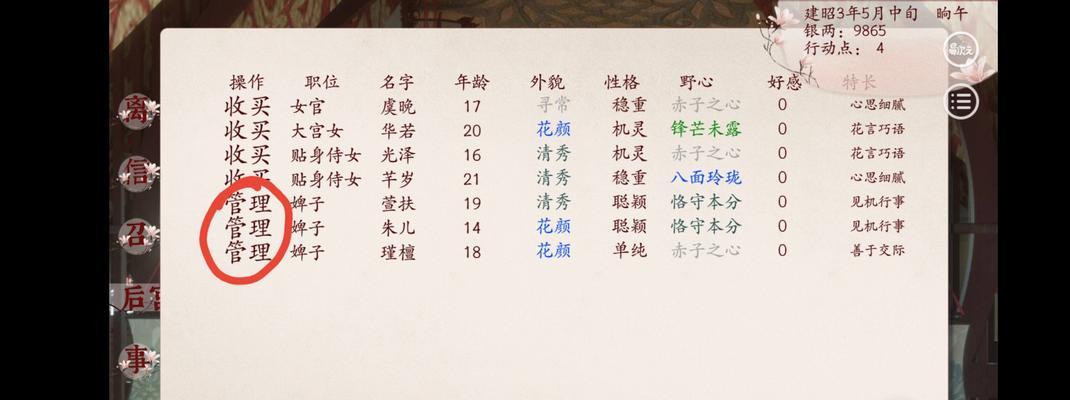 建昭3年5月中旬 晌午
银两：9865
行动点：4
易次元
操作 职位 名字 年龄 外貌 性格 野心 好感 特长
收买 女官 虞晚 17 寻常 稳重 赤子之心 0 心思细腻
收买 大宫女 华若 20 花颜 机灵 锋芒未露 0 花言巧语
收买 贴身侍女 光泽 16 清秀 机灵 赤子之心 0 花言巧语
收买 贴身侍女 芊岁 21 清秀 稳重 八面玲珑 0 心思细腻
管理 婢子 萱扶 19 清秀 聪颖 恪守本分 0 见机行事
管理 婢子 朱儿 14 花颜 聪颖 恪守本分 0 见机行事
管理 婢子 瑾檀 18 花颜 单纯 赤子之心 0 善于交际
离
信
召
后宫
事